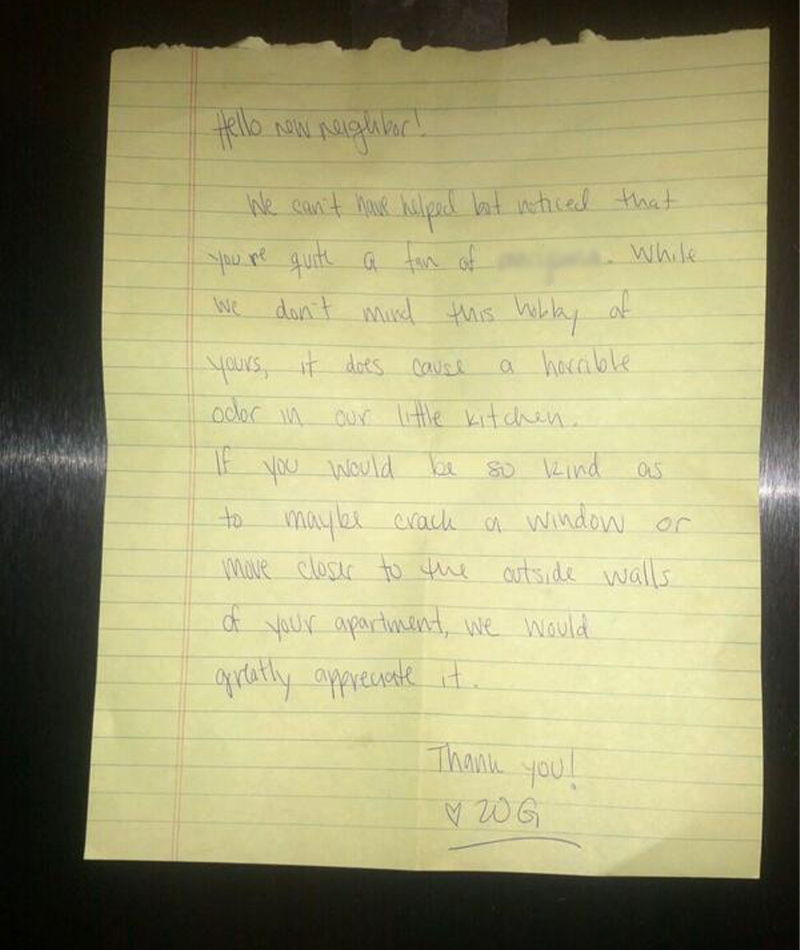 Hello new neighbor!
We can't have helped but noticed that
you're quite a fan of . While
we don't mind this hobby of
yours, it does cause a horrible
odor in our little kitchen.
If you would be so kind as
to maybe crack a window or
move closer to the outside walls
of your apartment, we would
greatly appreciate it.
Thank you!
♡ 20G